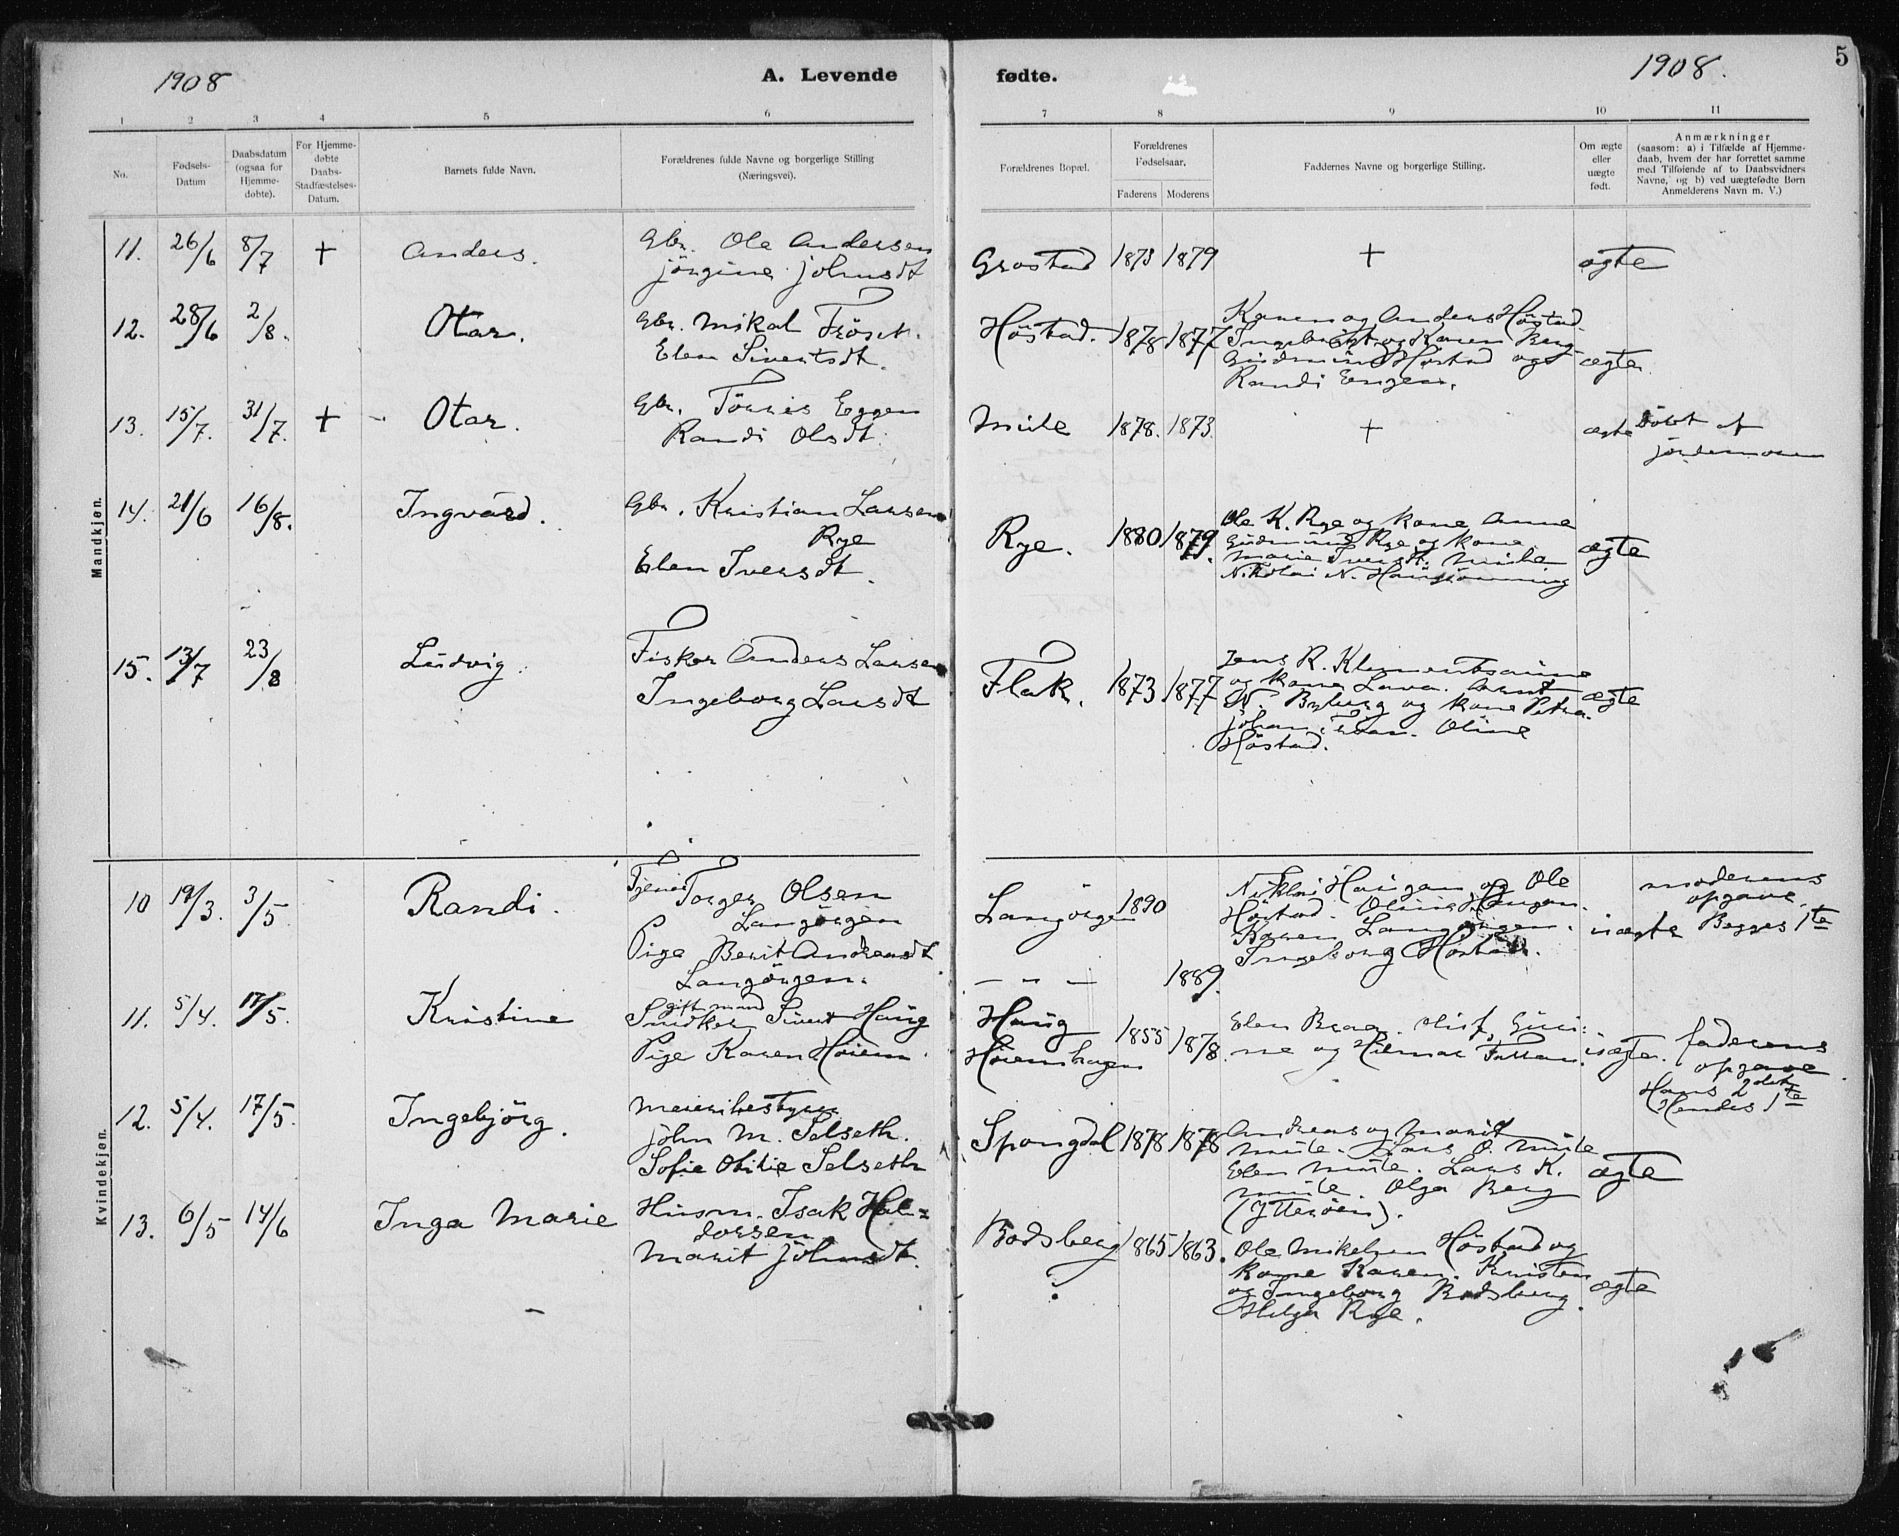 1908
A. Levende
fødte.
1908.
5
1 2 3 4 5 6
7 8 9 10 11
No.
Fødsels-
Datum
Daabsdatum
(ogsaa for
Hjemme-
døbte).
For Hjemme-
døbte
Daabs-
Stadfæstelses-
Datum.
Barnets fulde Navn.
Forældrenes fulde Navne og borgerlige Stilling
(Næringsvei).
Forældrenes Bopæl.
Forældrenes
Fødselsaar.
Faderens Moderens
Faddernes Navne og borgerlige Stilling.
Om ægte
eller
uægte
født.
Anmærkninger
(saasom: a) i Tilfælde af Hjemme-
daab, hvem der har forrettet samme
med Tilføiende af to Daabsvidners
Navne, og b) ved uægtefødte Børn
Anmelderens Navn m. V.)
Mandkjøn.
11. 26/6 8/7 + Anders. Gbr. Ole Andersen
Jörgine Johnsdt
Grostad 1873 1879 + ægte
12. 28/6 2/8. Otar. Gbr. Mikal Fröset.
Elen Sivertsdt.
Höstad. 1878 1877 Karen og Anders Höstad.
Ingebrigt og Karen Berg
Gudmund Höstad og
Randi Engen.
ægte
13. 15/7. 31/7. + - Otar. Gbr. Törris Eggen
Randi Olsdt.
Mule 1878. 1873 + ægte Döbt af
jordemoren
14. 21/6 16/8. Ingvard. Gbr. Kristian Larsen
Rye
Elen Iversdt.
Rye. 1880 1879. Ole K. Rye og kone Anne
Gudmund Rye og kone
Marie Iversdt. Mule
Nikolai N.
ægte
15. 13/7 23/8 Ludvig. Fisker Anders Larsen
Ingeborg Larsdt
Flak. 1873 1877 Jens R. Klementsaune
og kone Lava. Arnt
N. Byberg og kone Petra.
Johan Oline
Höstad.
ægte
Kvindekjøn.
10 19/3. 3/5. Randi. Tjener Torger Olsen
Langörgen
Pige Berit Andreasdt
Langörgen.
Langörgen 1890
— " — 1889.
Niklai Haugan og Ole
Höstad. Oline Haugan.
Karen Langörgen.
Ingeborg Höstad.
uægte moderens
opgave.
Begges 1te
11. 5/4. 17/5. Kristine gift mand
Snidker Sivert Haug
Pige Karen Höiem.
Haug
Höiemshagen
1855 1878. Elen Braa. Guri-
ne og Hilmar
uægte. faderens
opgave
Hans 2det
Hendes 1te
12. 5/4. 17/5. Ingebjörg. Meieribestyrer
John M. Selseth.
Sofie Otilie Selseth
Spongdal 1878 1878 Andreas og Marit
Mule. Lars O. Mule
Elen Mule. Lars K.
Mule. Olga Berg
(Ytteröen).
ægte
13. 6/5 14/6 Inga Marie Husm. Isak Hal=
dorsen
Marit Johnsdt.
Rodsberg 1865 1863. Ole Mikelsen Höstad og
kone Karen. Kristen
og Ingeborg Rodsberg.
Helga Rye.
ægte